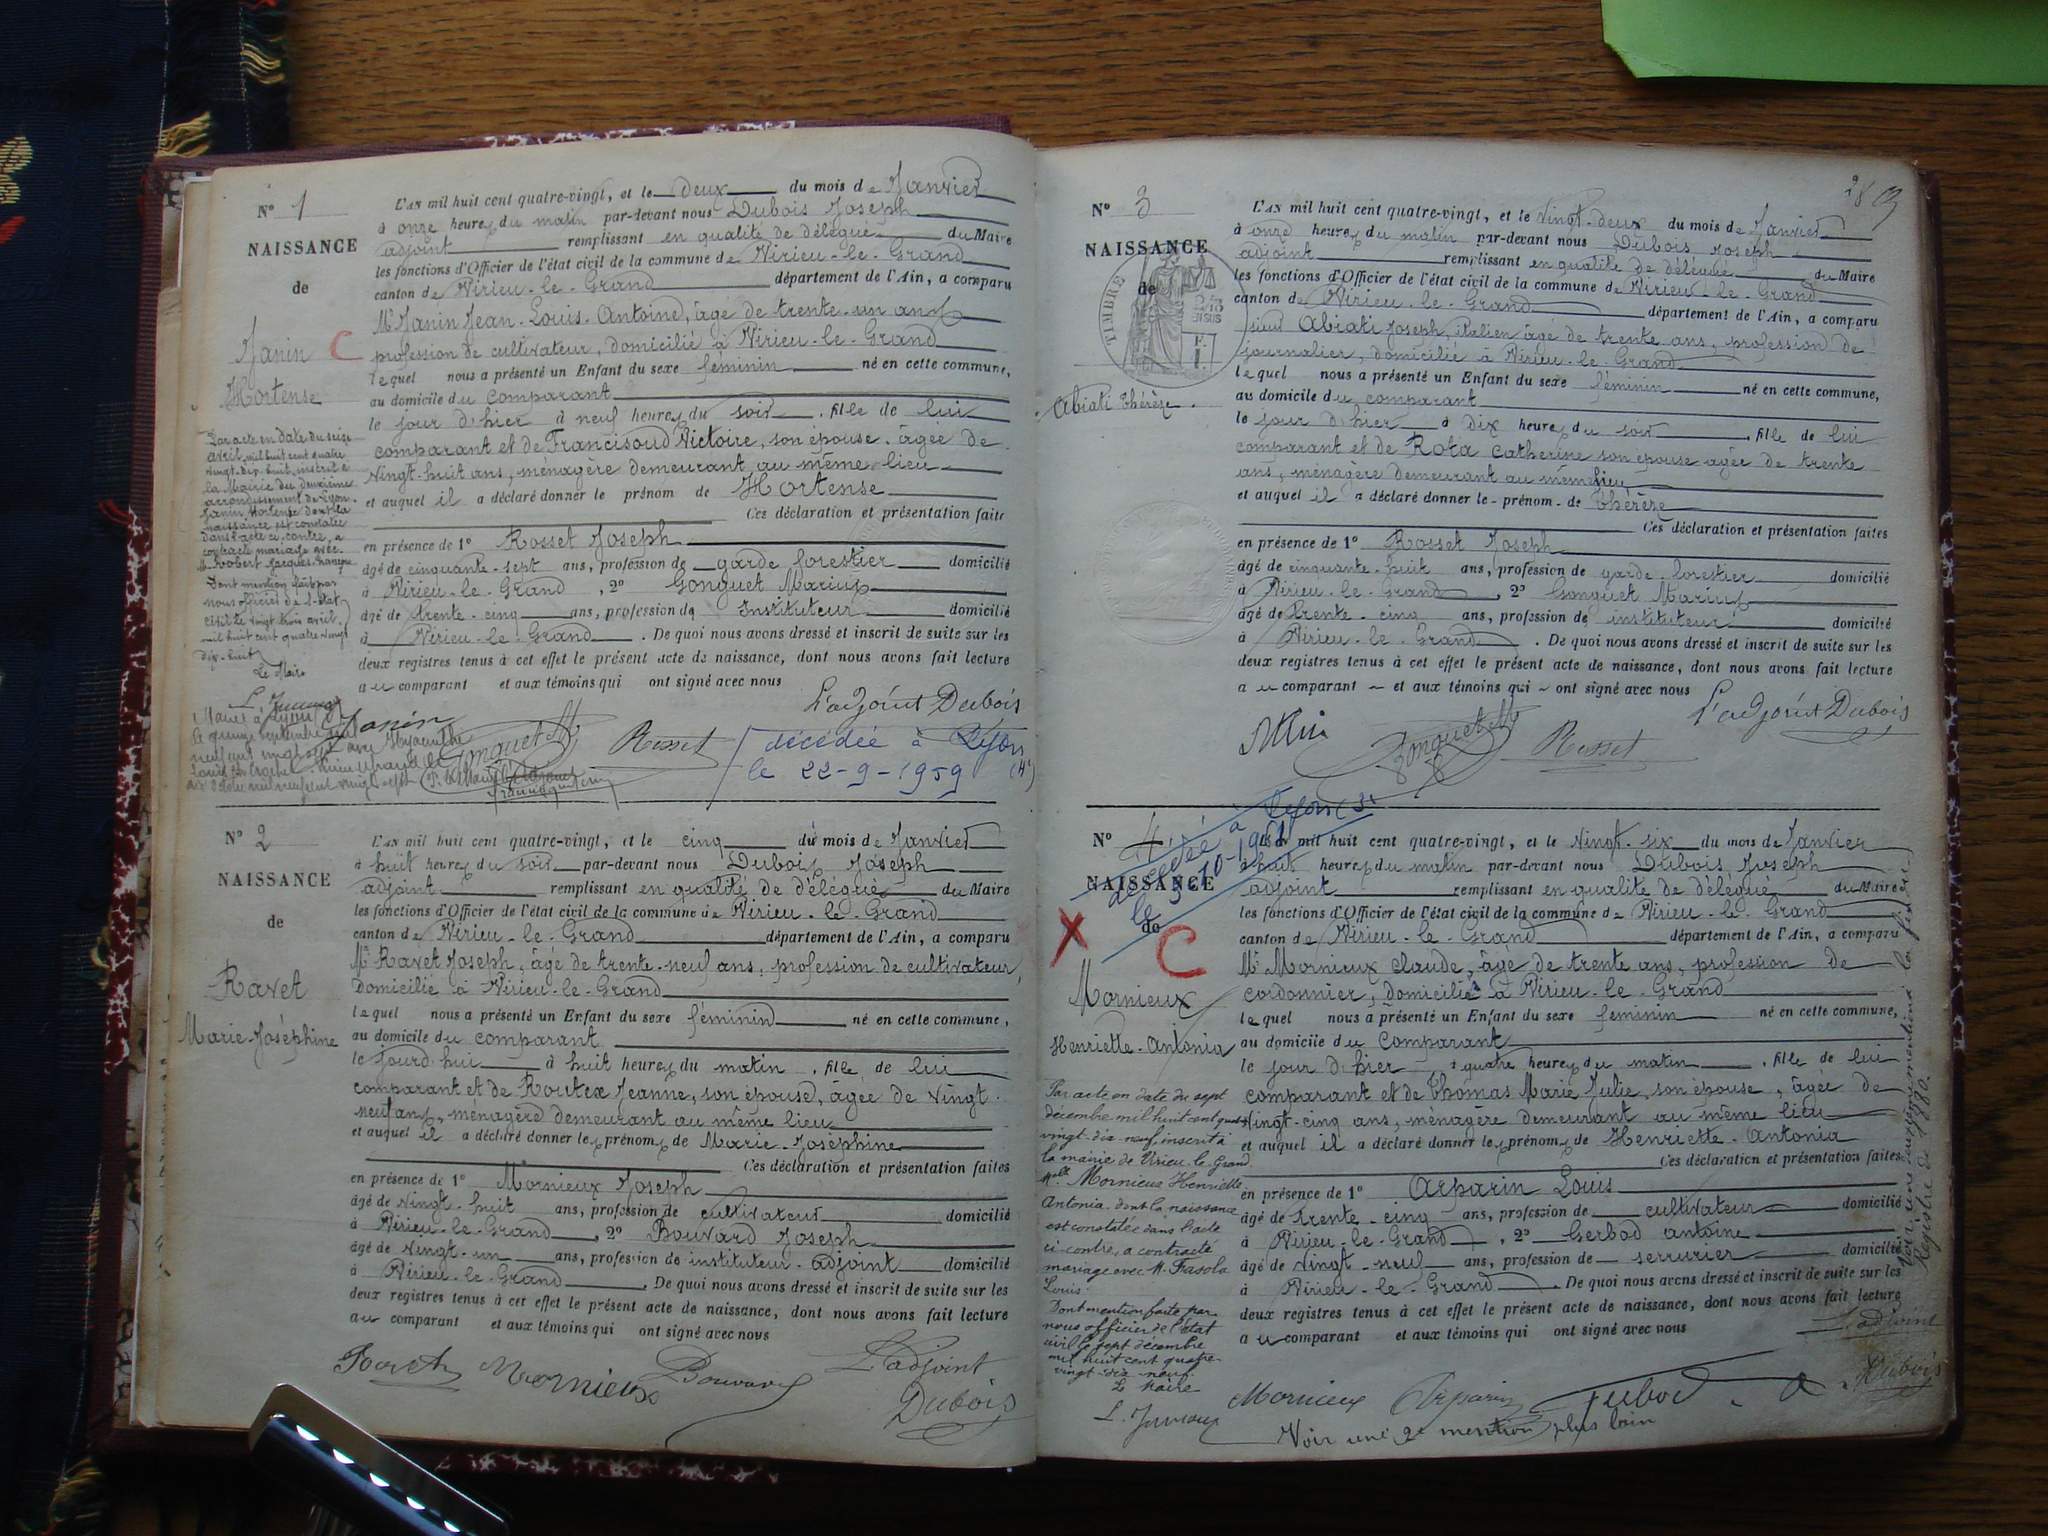 N° 1
NAISSANCE
de
Janin
Hortense
C
L'AN mil huit cent quatre-vingt, et le deux du mois de Janvier
à onze heures du matin par-devant nous Dubois Joseph
adjoint remplissant en qualité de délégué du Maire
les fonctions d'Officier de l'état civil de la commune de Virieu-le-Grand
canton de Virieu-le-Grand département de l'Ain, a comparu
Mr Janin Jean-Louis-Antoine, âgé de trente-un ans
profession de cultivateur, domicilié à Virieu-le-Grand
lequel nous a présenté un Enfant du sexe féminin né en cette commune,
au domicile du comparant
le jour d'hier à neuf heures du soir, fille de lui
comparant et de Francisoud Victoire, son épouse, âgée de
vingt-huit ans, ménagère demeurant au même lieu
et auquel il a déclaré donner le prénom de Hortense
Ces déclaration et présentation faites
en présence de 1° Rosset Joseph
âgé de cinquante-sept ans, profession de garde forestier domicilié
à Virieu-le-Grand, 2° Gonguet Marius
âgé de trente-cinq ans, profession de Instituteur domicilié
à Virieu-le-Grand. De quoi nous avons dressé et inscrit de suite sur les
deux registres tenus à cet effet le présent acte de naissance, dont nous avons fait lecture
au comparant et aux témoins qui ont signé avec nous
Par acte en date du seize
avril mil huit cent quatre
vingt-dix-huit inscrit à
la Mairie du deuxième
arrondissement de Lyon
Janin Hortense dont la
naissance est constatée
dans l'acte ci-contre, a
contracté mariage avec
M. Robert Jacques
Dont mention faite par
nous officier de l'état
civil le vingt trois avril
mil huit cent quatre vingt
dix-huit
Le Maire
L'adjoint Dubois
Janin Gonguet M Rosset
décédée à Lyon (4e)
le 22-9-1959
N° 2
NAISSANCE
de
Ravet
Marie-Joséphine
L'AN mil huit cent quatre-vingt, et le cinq du mois de Janvier
à huit heures du soir par-devant nous Dubois Joseph
adjoint remplissant en qualité de délégué du Maire
les fonctions d'Officier de l'état civil de la commune de Virieu-le-Grand
canton de Virieu-le-Grand département de l'Ain, a comparu
Mr Ravet Joseph, âgé de trente-neuf ans, profession de cultivateur
domicilié à Virieu-le-Grand
lequel nous a présenté un Enfant du sexe féminin né en cette commune,
au domicile du comparant
le jourd'hui à huit heures du matin, fille de lui
comparant et de Routex Jeanne, son épouse, âgée de vingt-
neuf ans, ménagère demeurant au même lieu
et auquel il a déclaré donner les prénoms de Marie-Joséphine
Ces déclaration et présentation faites
en présence de 1° Mornieux Joseph
âgé de vingt-huit ans, profession de cultivateur domicilié
à Virieu-le-Grand, 2° Bouvard Joseph
âgé de vingt-un ans, profession de instituteur-adjoint domicilié
à Virieu-le-Grand. De quoi nous avons dressé et inscrit de suite sur les
deux registres tenus à cet effet le présent acte de naissance, dont nous avons fait lecture
au comparant et aux témoins qui ont signé avec nous
Mornieux Bouvard L'adjoint
Dubois
N° 3
NAISSANCE
de
TIMBRE
Abiati Thérèse
L'AN mil huit cent quatre-vingt, et le vingt-deux du mois de Janvier
à onze heures du matin par-devant nous Dubois Joseph
adjoint remplissant en qualité de délégué du Maire
les fonctions d'Officier de l'état civil de la commune de Virieu-le-Grand
canton de Virieu-le-Grand département de l'Ain, a comparu
sieur Abiati Joseph, italien âgé de trente ans, profession de
journalier, domicilié à Virieu-le-Grand
lequel nous a présenté un Enfant du sexe féminin né en cette commune,
au domicile du comparant
le jour d'hier à dix heures du soir, fille de lui
comparant et de Rota Catherine son épouse âgée de trente
ans, ménagère demeurant au même lieu
et auquel il a déclaré donner le-prénom-de Thérèse
Ces déclaration et présentation faites
en présence de 1° Rosset Joseph
âgé de cinquante-huit ans, profession de garde-forestier domicilié
à Virieu-le-Grand, 2° Gonguet Marius
âgé de trente-cinq ans, profession de instituteur domicilié
à Virieu-le-Grand. De quoi nous avons dressé et inscrit de suite sur les
deux registres tenus à cet effet le présent acte de naissance, dont nous avons fait lecture
au comparant et aux témoins qui ont signé avec nous
L'adjoint Dubois
Gonguet M Rosset
N° 4
NAISSANCE
de
X C
Mornieux
Henriette-Antonia
décédée à Lyon 3e
L'AN mil huit cent quatre-vingt, et le vingt-six du mois de Janvier
à huit heures du matin par-devant nous Dubois Joseph
adjoint remplissant en qualité de délégué du Maire
les fonctions d'Officier de l'état civil de la commune de Virieu-le-Grand
canton de Virieu-le-Grand département de l'Ain, a comparu
Mr Mornieux Claude, âgé de trente ans, profession de
cordonnier, domicilié à Virieu-le-Grand
lequel nous a présenté un Enfant du sexe féminin né en cette commune,
au domicile du Comparant
le jour d'hier à quatre heures du matin, fille de lui
comparant et de Thomas Marie Julie, son épouse, âgée de
vingt-cinq ans, ménagère demeurant au même lieu
et auquel il a déclaré donner les prénoms de Henriette-Antonia
Ces déclaration et présentation faites
en présence de 1° Arparin Louis
âgé de trente-cinq ans, profession de cultivateur domicilié
à Virieu-le-Grand, 2° Gerbod Antoine
âgé de vingt-neuf ans, profession de serrurier domicilié
à Virieu-le-Grand. De quoi nous avons dressé et inscrit de suite sur les
deux registres tenus à cet effet le présent acte de naissance, dont nous avons fait lecture
au comparant et aux témoins qui ont signé avec nous
Par acte en date du sept
décembre mil huit cent quatre
vingt-dix-neuf, inscrit à
la mairie de Virieu-le-Grand
Melle Mornieux Henriette
Antonia dont la naissance
est constatée dans l'acte
ci-contre, a contracté
mariage avec M. Fasola
Louis.
Dont mention faite par
nous officier de l'état
civil le sept décembre
mil huit cent quatre-
vingt-dix-neuf.
Le Maire
L'adjoint
Dubois
Mornieux Arparin Gerbod
Voir une 2e mention plus loin
Voir une deuxième mention à la fin du
Registre de 1880.